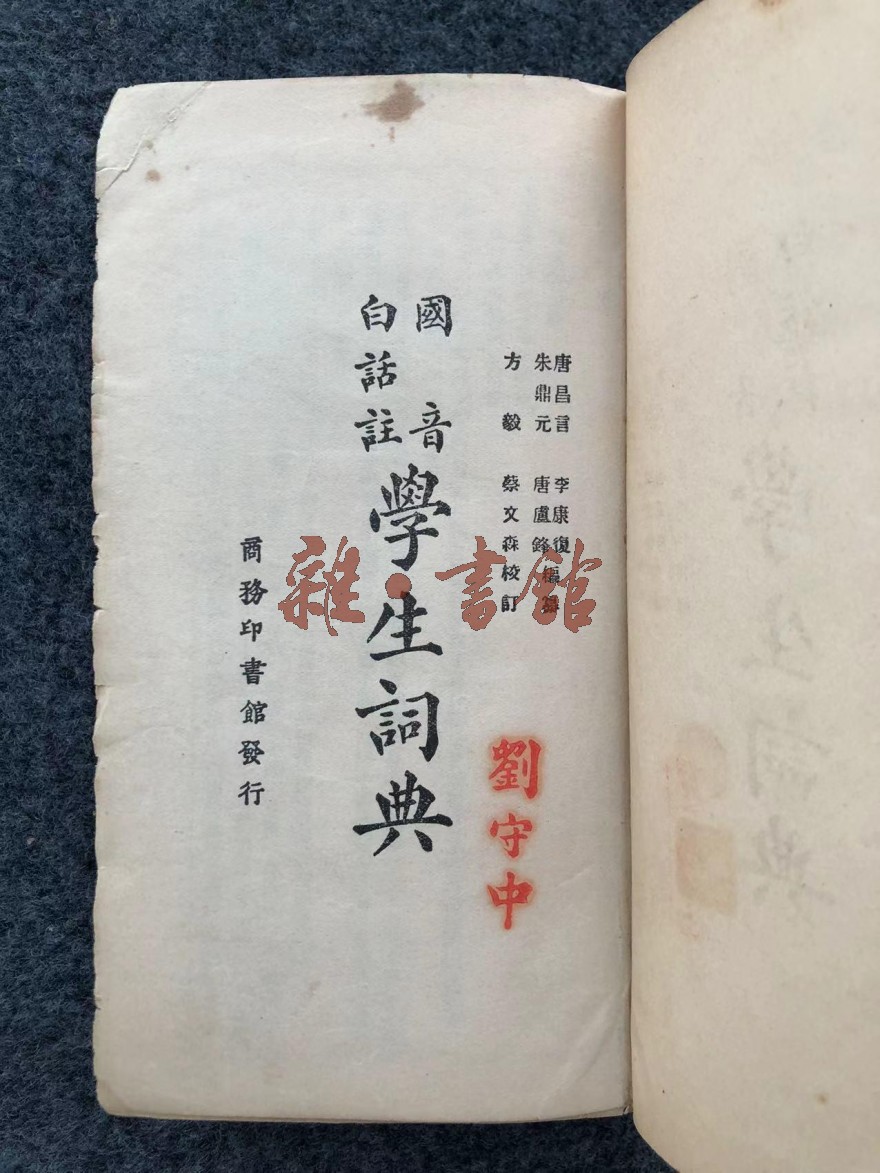 唐昌言 李康復
朱鼎元 唐盧鋒 編
方毅 蔡文森校訂
國音
白話註
學生詞典
商務印書館發行
劉守中
雜·書館